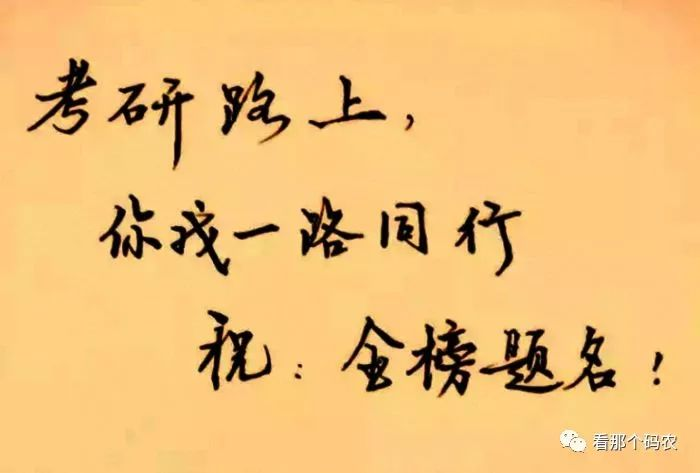 考研路上，
你我一路同行
祝：金榜题名！
看那个码农